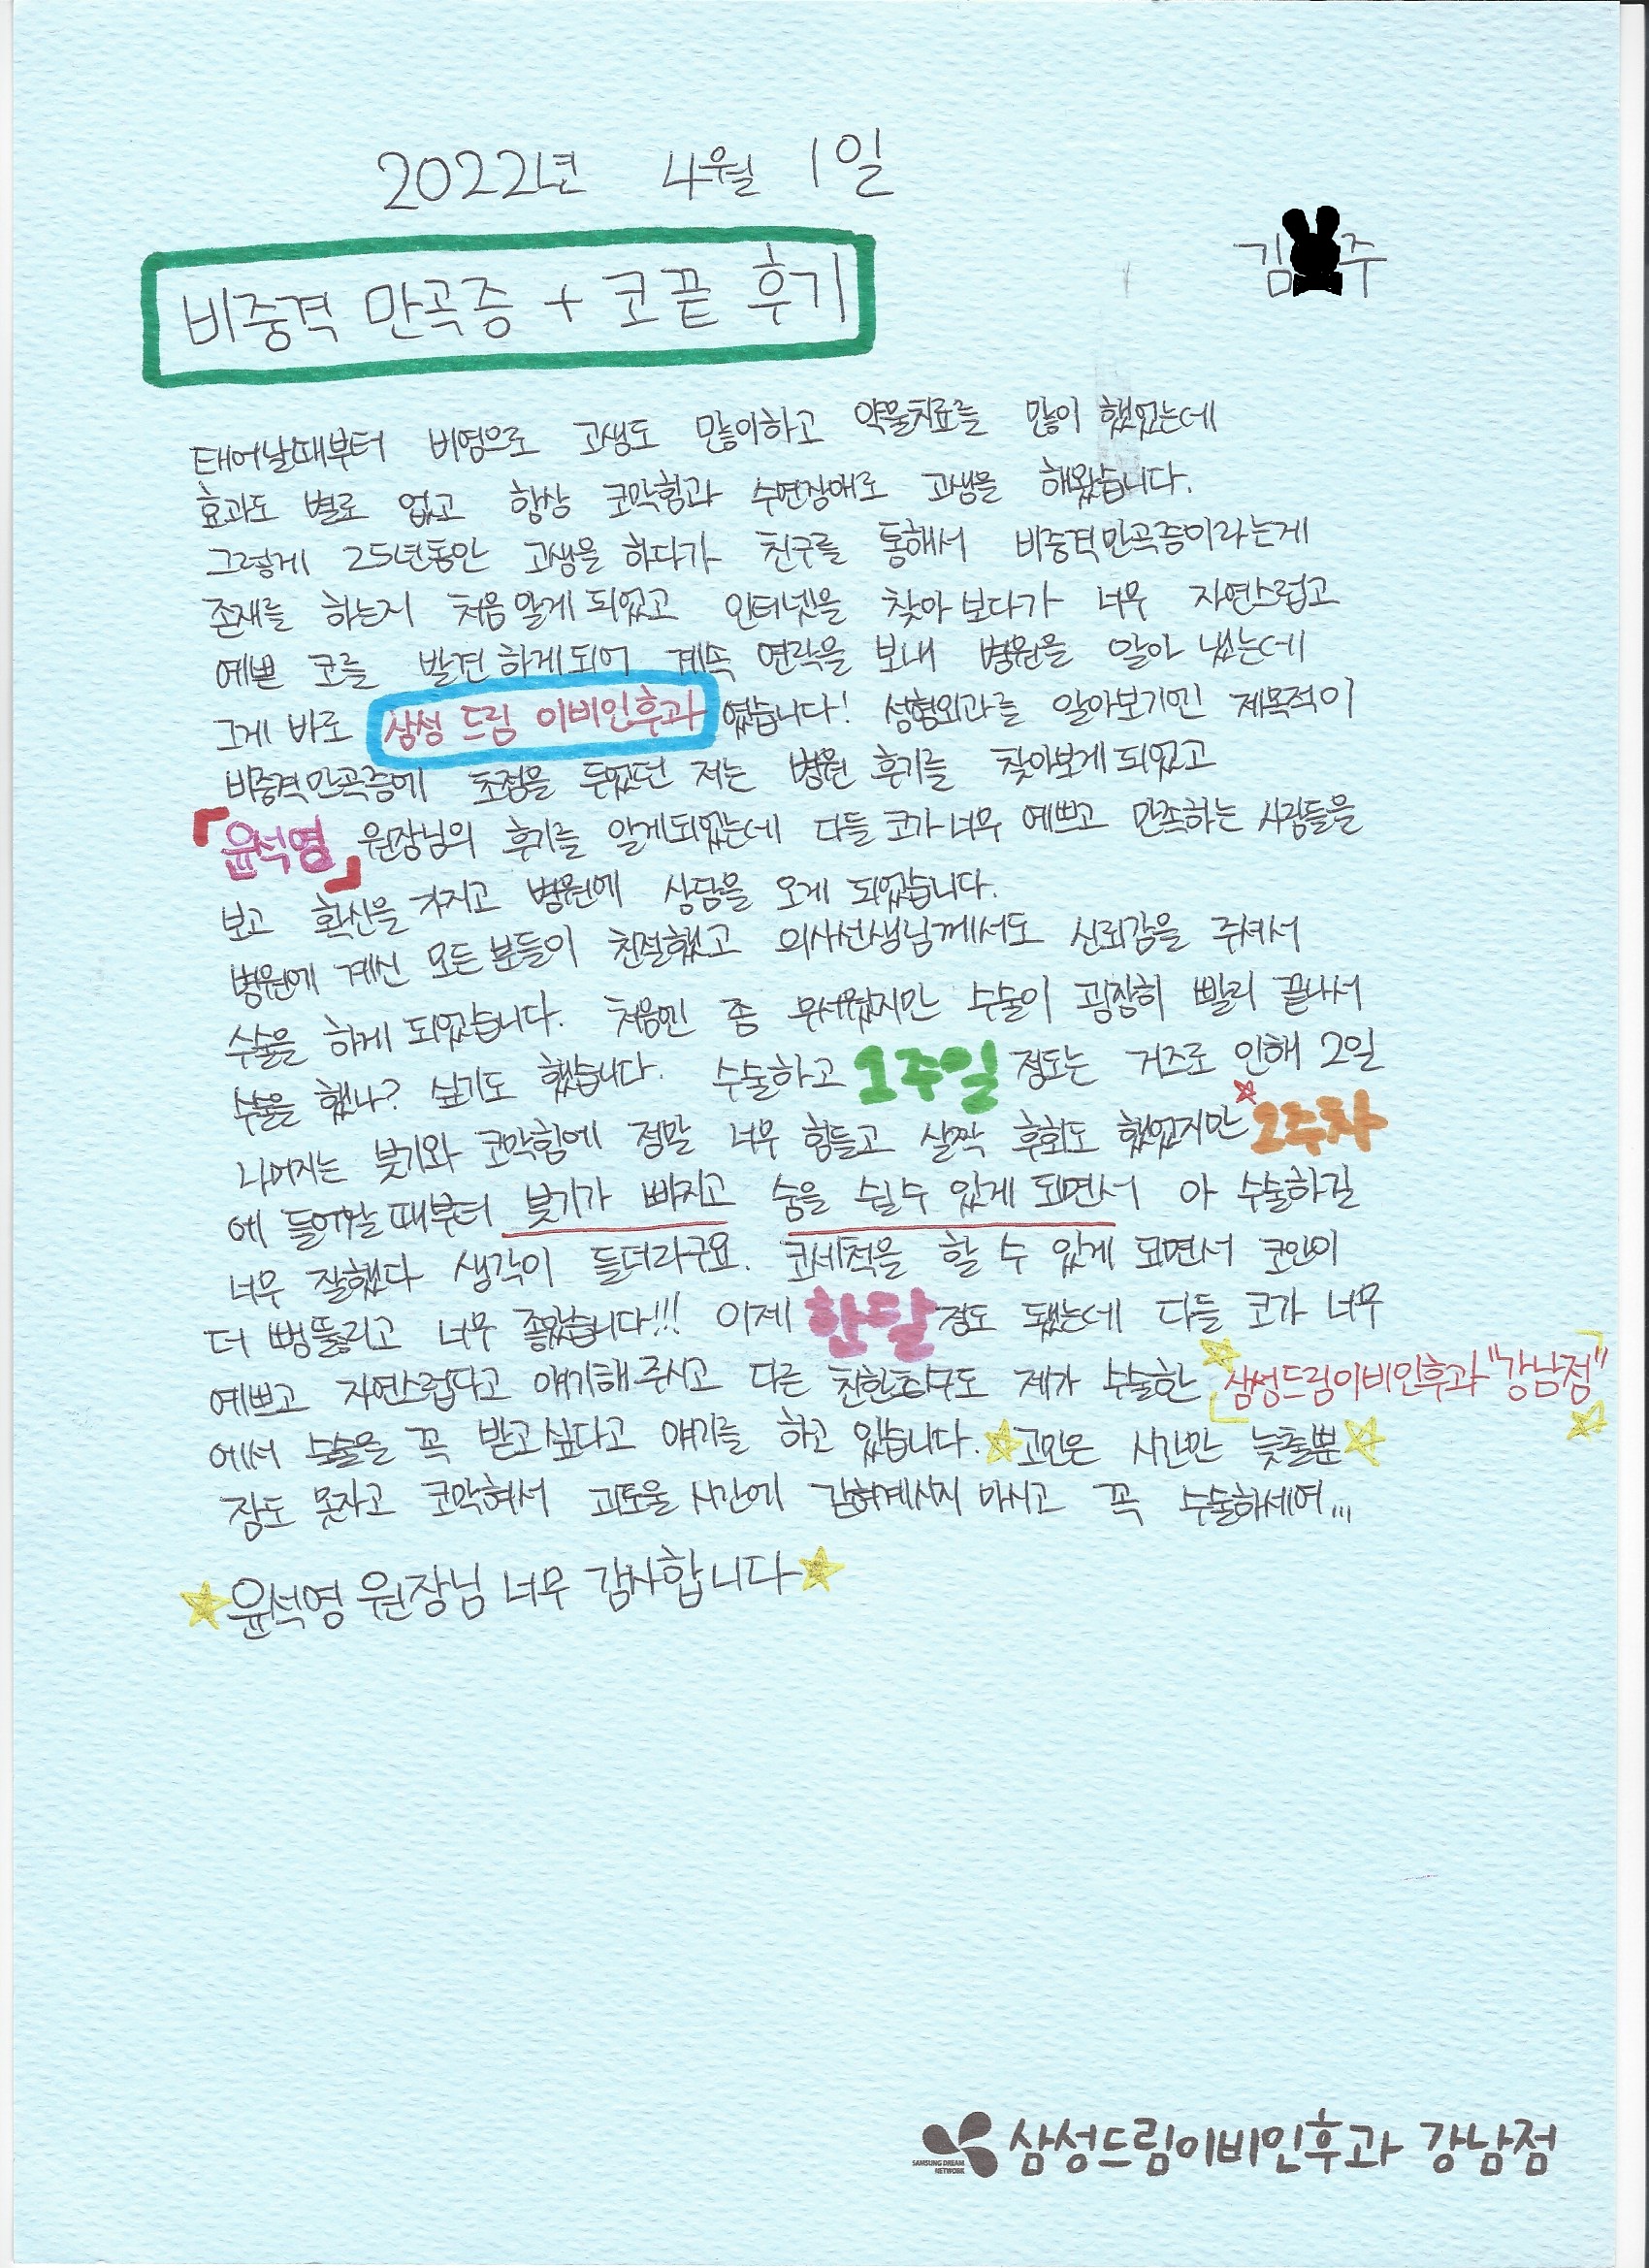 2022년 4월 1일
김 주
비중격 만곡증 + 코끝 후기
태어날때부터 비염으로 고생도 많이하고 약물치료를 많이 했었는데
효과도 별로 없고 항상 코막힘과 수면장애로 고생을 해왔습니다.
그렇게 25년동안 고생을 하다가 친구를 통해서 비중격만곡증이라는게
존재를 하는지 처음 알게 되었고 인터넷을 찾아 보다가 너무 자연스럽고
예쁜 코를 발견하게되어 계속 연락을 보내 병원을 알아 냈는데
그게 바로 삼성 드림 이비인후과 였습니다! 성형외과를 알아보기엔 제목적이
비중격만곡증에 초점을 두었던 저는 병원 후기를 찾아보게 되었고
「윤석영」 원장님의 후기를 알게되었는데 다들 코가 너무 예쁘고 만족하는 사람들을
보고 확신을 가지고 병원에 상담을 오게 되었습니다.
병원에 계신 모든 분들이 친절했고 의사선생님께서도 신뢰감을 주셔서
수술을 하게 되었습니다. 처음엔 좀 무서웠지만 수술이 굉장히 빨리 끝나서
수술을 했나? 싶기도 했습니다. 수술하고 1주일 정도는 거즈로 인해 2일
나머지는 붓기와 코막힘에 정말 너무 힘들고 살짝 후회도 했었지만 ☆2주차
에 들어갈때부터 붓기가 빠지고 숨을 쉴수 있게 되면서 아 수술하길
너무 잘했다 생각이 들더라구요. 코세척을 할 수 있게 되면서 코안이
더 뻥뚫리고 너무 좋았습니다!!! 이제 한달 정도 됐는데 다들 코가 너무
예쁘고 자연스럽다고 얘기해 주시고 다른 친한친구도 제가 수술한 삼성드림이비인후과 "강남점"
에서 수술을 꼭 받고싶다고 얘기를 하고 있습니다. ☆고민은 시간만 늦출뿐☆
잠도 못자고 코막혀서 괴로울 시간에 갇혀계시지 마시고 꼭 수술하세여...
☆윤석영 원장님 너무 감사합니다☆
SAMSUNG DREAM NETWORK 삼성드림이비인후과 강남점